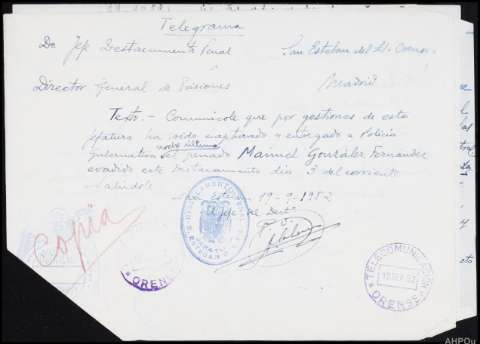 Telegrama
De Jefe Destacamento Penal San Esteban del
A
Director General de Prisiones Madrid
Texto.- Comunícole que por gestiones de esta
jefatura ha sido capturado y entregado a Policía
noche última
gubernativa penado Manuel González Fernández
evadido este Destacamento día 3 del corriente
Salúdole
19-9-1952
El Jefe del Dest.
Copia
ORENSE
TELECOMUNICACION
ORENSE
AHPOu